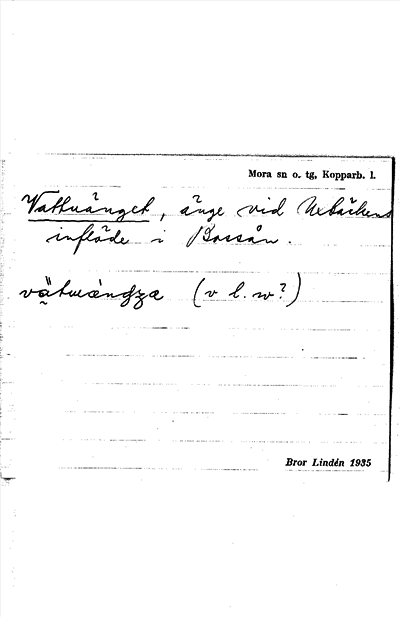 Mora sn o. tg, Kopparb. l.
Vattuänget, änge vid Uxbäckens
inflöde i Bossån.
(v l. w?)
Bror Lindén 1935